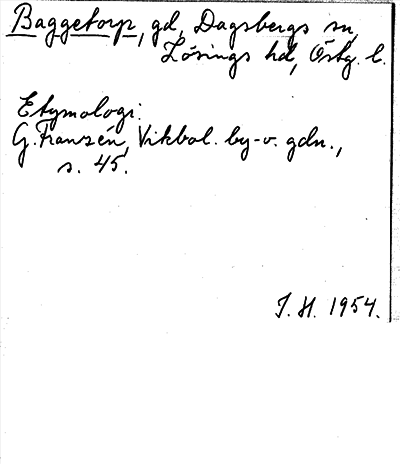 Baggetorp, gd, Dagsbergs sn,
Lösings hd, Östg. l.
Etymologi:
G. Franzén, Vikbol. by-o. gdn.,
s. 45.
I. H. 1954.